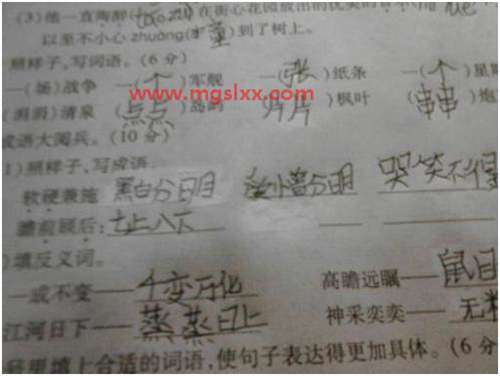 (3)他一直陶醉(táo zuì)在街心花园放出的优美的
以至不小心zhuàng(童)到了树上。
照样子,写词语。(6分)
一(场)战争 一(个)军舰 一(张)纸条 一(个)星
www.mgslxx.com
(潺潺)清泉 (点点)岛屿 (片片)枫叶 (串串)炮
成语大阅兵。(10分)
1)照样子,写成语。
软硬兼施 黑白分明 爱憎分明 哭笑不得
瞻前顾后: 七上八下
)填反义词。
一成不变——千变万化 高瞻远瞩——鼠目
江河日下——蒸蒸日上 神采奕奕——无精
号里填上合适的词语,使句子表达得更加具体。(6分